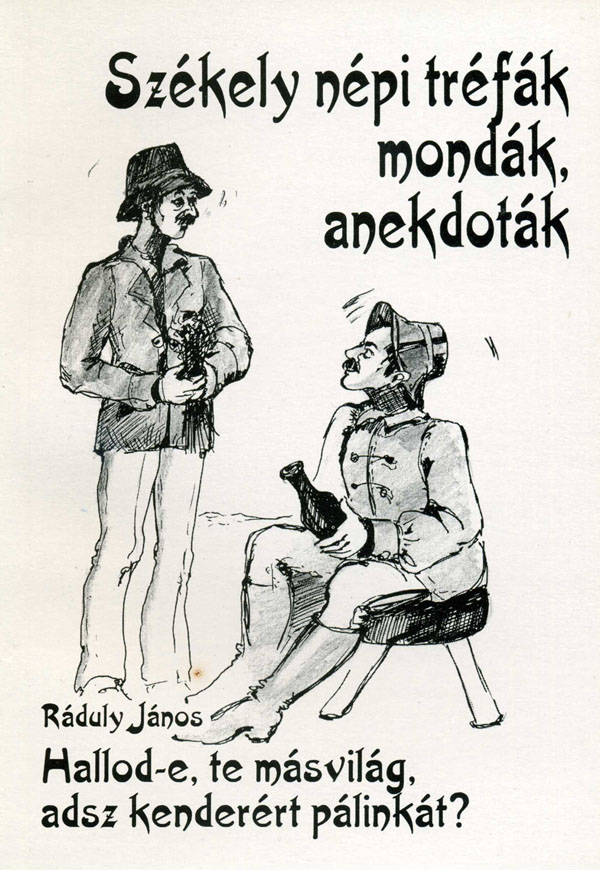 Székely népi tréfák
mondák,
anekdoták
Ráduly János
Hallod-e, te másvilág,
adsz kenderért pálinkát?